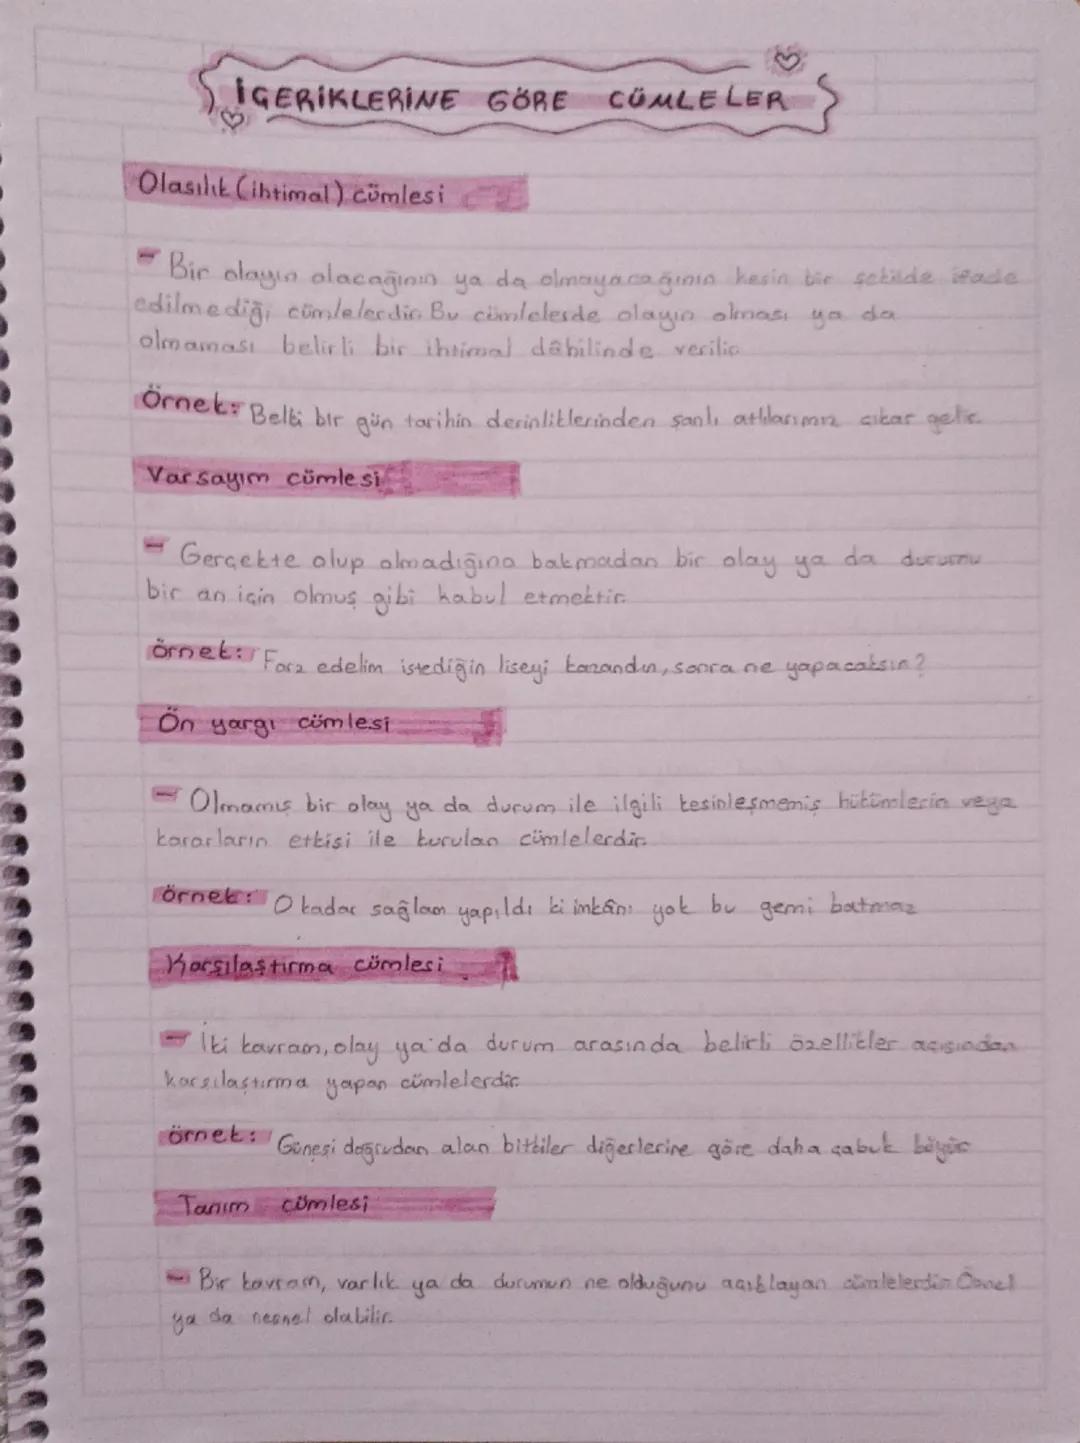 İÇERİKLERİNE GÖRE CÜMLELER
Olasılık (ihtimal) cümlesi
- Bir olayın olacağının ya da olmayacağının kesin bir şekilde ifade
edilmediği cümlelerdir. Bu cümlelerde olayın olması ya da
olmaması belirli bir ihtimal dâhilinde verilir.
Örnek: Belki bir gün tarihin derinliklerinden şanlı atlılarımız çıkar gelir.
Varsayım cümlesi
- Gerçekte olup olmadığına bakmadan bir olay ya da durumu
bir an için olmuş gibi kabul etmektir.
örnek: Farz edelim istediğin liseyi kazandın, sonra ne yapacaksın?
Ön yargı cümlesi
- Olmamış bir olay ya da durum ile ilgili kesinleşmemiş hükümlerin veya
kararların etkisi ile kurulan cümlelerdir.
örnek: O kadar sağlam yapıldı ki imkânı yok bu gemi batmaz
Karşılaştırma cümlesi
- İki kavram, olay ya da durum arasında belirli özellikler açısından
karşılaştırma yapan cümlelerdir.
örnek: Güneşi doğrudan alan bitkiler diğerlerine göre daha çabuk büyür
Tanım cümlesi
- Bir kavram, varlık ya da durumun ne olduğunu açıklayan cümlelerdir. Öznel
ya da nesnel olabilir.